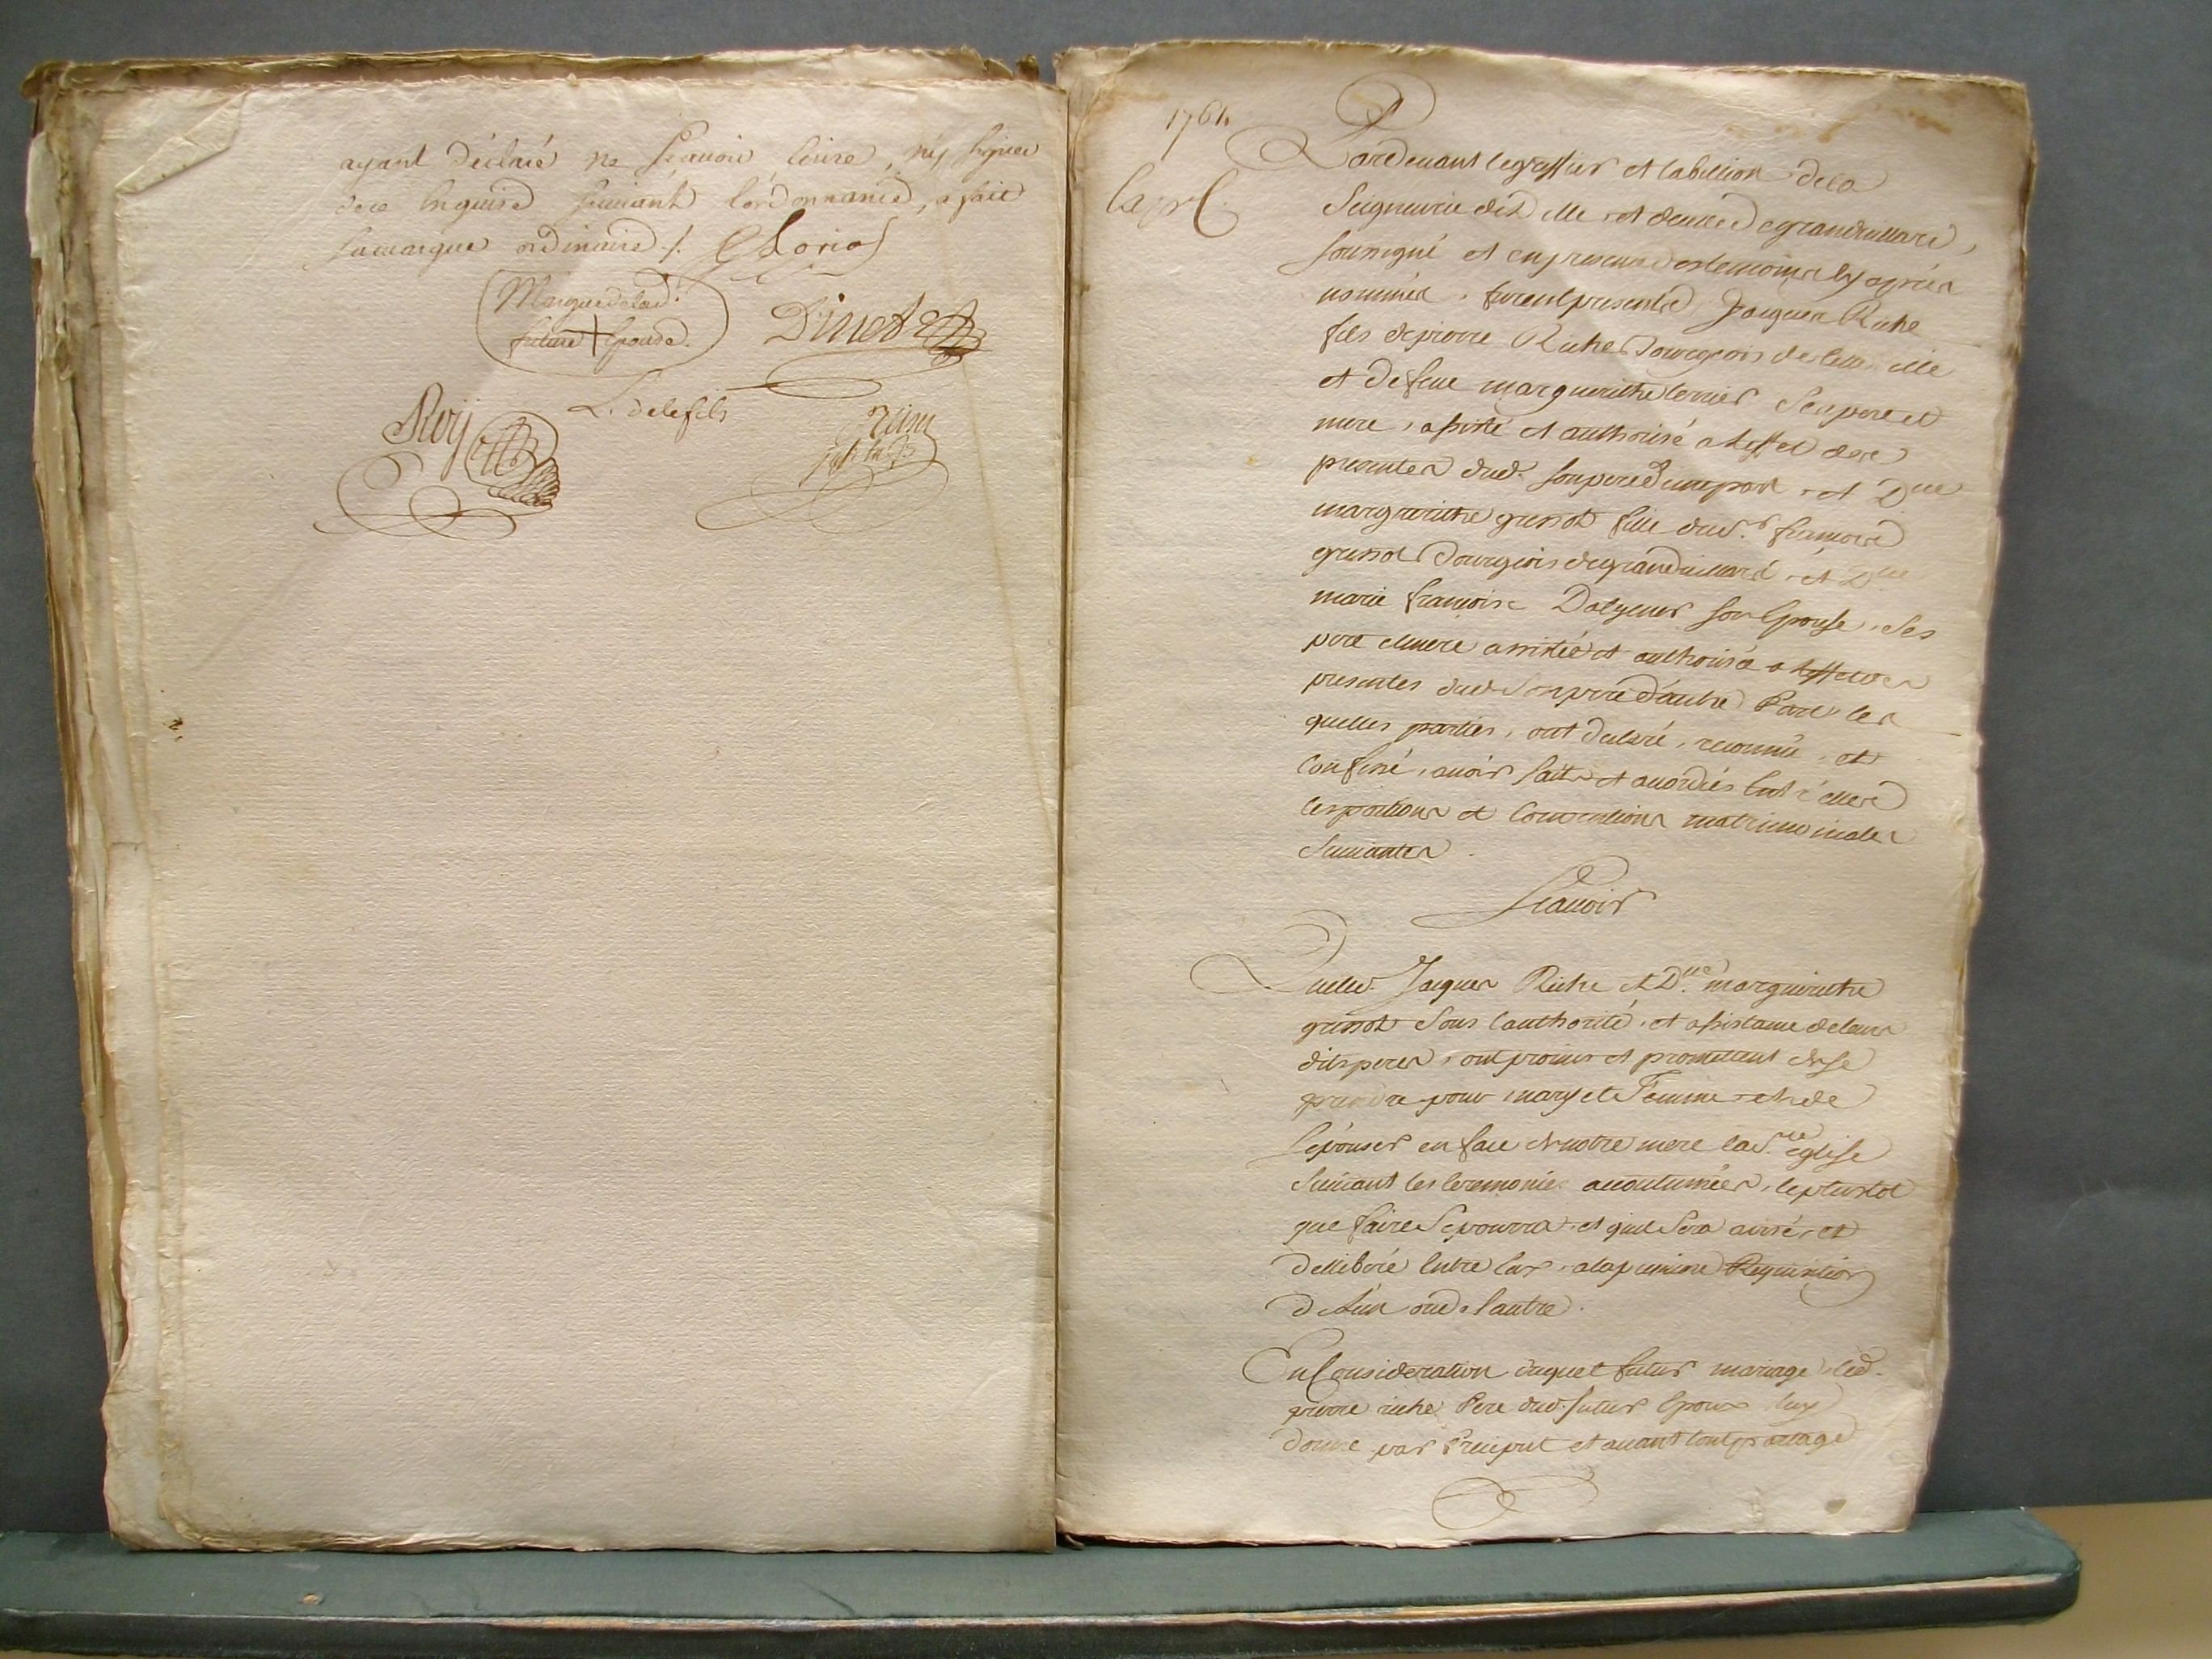 ayant déclaré ne scavoir écrire, ny signer
de ce enquise suivant l'ordonnance, a fait
sa marque ordinaire ./.
Marque de lad.
future + Epouse.
Dinet
L. delefils
Roy
1764
Pardevant le greffier et tabellion de la
Seigneurie de et de grandvillard,
soussigné et en presence des temoins cy après
nommés, furent presents Jacques Riche
fils de pierre Riche Bourgeois de ville
et de feue margueritte terrier Ses pere et
mere, assisté et authorisé a l'effet des
presentes dud. son pere d'une part, et Dlle
margueritte grisot fille dud. Sr. francois
grisot Bourgeois de grandvillard, et Dlle
marie francoise son Epouse, Ses
pere et mere assistée et authorisée a l'effet des
presentes dud. Son pere d'autre Part, les
quelles parties, ont declaré, reconnu, et
confessé, avoir faits et accordés entr'elles
les pactions et Conventions matrimoniales
Suivantes.
Scavoir
Que led. Jacques Riche et Dlle. margueritte
grisot Sous l'authorité, et assistance de leurs
dits peres, ont promis et promettent de se
prendre pour mary et Femme et de
s'epouser en face de notre mere la Ste eglise
Suivant les ceremonies accoutumées, le plustot
que faire Se pourra et qu'il Sera avisé, et
delliberé Entre Eux, a la premiere Requisition
de l'un ou de l'autre.
En Consideration duquel futur mariage, led.
pierre riche Pere dud. futur Epoux luy
donne par Preciput et avant tout partage